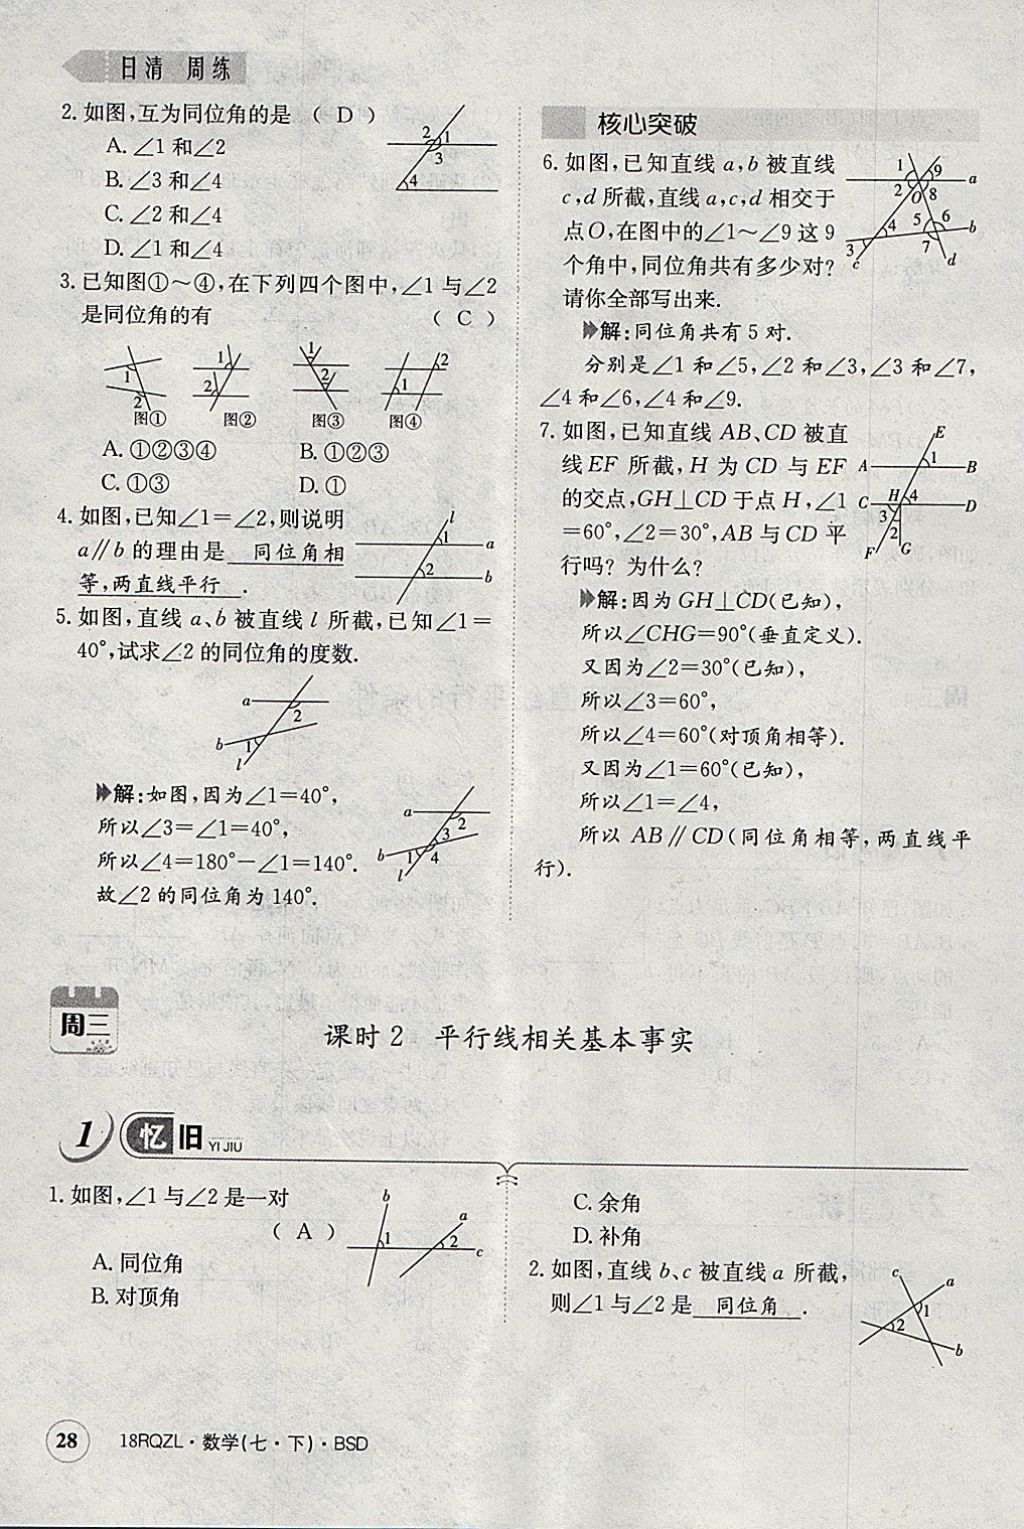 日清 周练
2.如图,互为同位角的是 ( D )
A.∠1和∠2
B.∠3和∠4
C.∠2和∠4
D.∠1和∠4
2 1
3
4
3.已知图①～④,在下列四个图中,∠1与∠2
是同位角的有 ( C )
1 2 图①
1 2 图②
1 2 图③
1 2 图④
A.①②③④ B.①②③
C.①③ D.①
4.如图,已知∠1=∠2,则说明
a∥b的理由是 同位角相
等,两直线平行 .
l
1 a
2 b
5.如图,直线a、b被直线l所截,已知∠1=
40°,试求∠2的同位角的度数.
a 2
b 1
l
解:如图,因为∠1=40°,
所以∠3=∠1=40°,
所以∠4=180°－∠1=140°.
故∠2的同位角为140°.
a 3 2
b 1 4
l
核心突破
6.如图,已知直线a,b被直线
c,d所截,直线a,c,d相交于
点O,在图中的∠1～∠9这9
个角中,同位角共有多少对?
请你全部写出来.
1 9 a
2 O 8
4 5 6 b
3 7
c d
解:同位角共有5对.
分别是∠1和∠5,∠2和∠3,∠3和∠7,
∠4和∠6,∠4和∠9.
7.如图,已知直线AB、CD被直
线EF所截,H为CD与EF
的交点,GH⊥CD于点H,∠1
=60°,∠2=30°,AB与CD平
行吗? 为什么?
E
A 1 B
C H 4 D
3
2
F G
解:因为GH⊥CD(已知),
所以∠CHG=90°(垂直定义).
又因为∠2=30°(已知),
所以∠3=60°,
所以∠4=60°(对顶角相等).
又因为∠1=60°(已知),
所以∠1=∠4,
所以AB∥CD(同位角相等,两直线平
行).
周三
课时2 平行线相关基本事实
1 忆旧 YI JIU
1.如图,∠1与∠2是一对
( A )
A.同位角
B.对顶角
b
a
1 2 c
C.余角
D.补角
2.如图,直线b、c被直线a所截,
则∠1与∠2是 同位角 .
c a
1
2
b
28 18RQZL·数学(七·下)·BSD